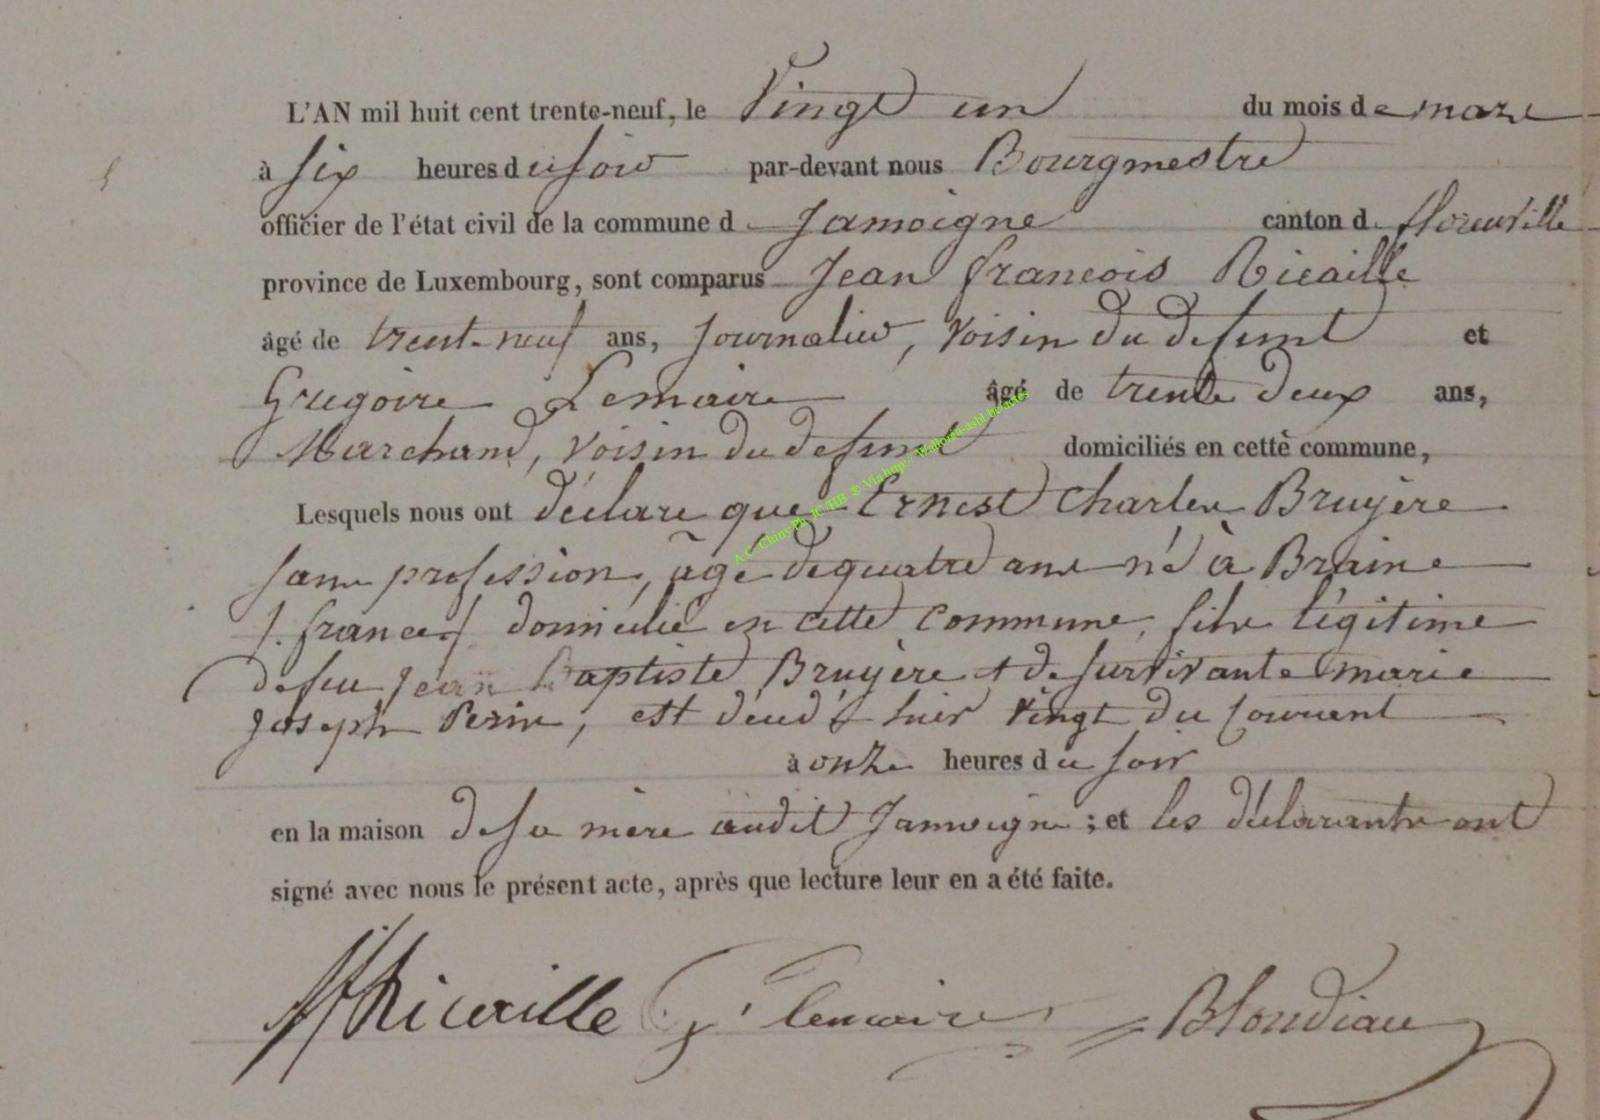 L'AN mil huit cent trente-neuf, le Vingt un du mois de mars
à Six heures du soir par-devant nous Bourgmestre
officier de l'état civil de la commune d Jamoigne canton d florenville
province de Luxembourg, sont comparus Jean francois Ricaille
âgé de trent-neuf ans, Journalier, voisin du defunt et
Gregoire Lemaire âgé de trente deux ans,
Marchand, voisin du defunt domiciliés en cette commune,
Lesquels nous ont déclaré que Ernest Charles Bruyère
sans profession, agé de quatre ans né à Braine
(france) domicilié en cette commune, fils légitime
de feu Jean Baptiste Bruyère et de survivante marie
Joseph Perin, est décédé hier Vingt du courrent
à onze heures du soir
en la maison de sa mère audit Jamoigne ; et les déclarants ont
signé avec nous le présent acte, après que lecture leur en a été faite.
Ricaille G lemaire Blondiau